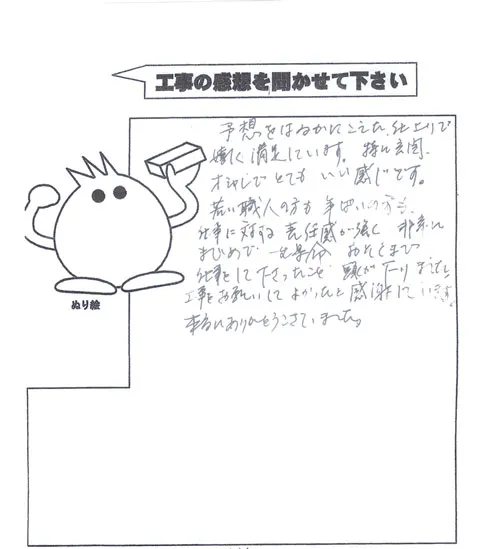 工事の感想を聞かせて下さい
予想をはるかにこえた、仕上りで
嬉しく満足しています。特に玄関、
オシャレでとてもいい感じです。
若い職人の方も年配の方も、
仕事に対する責任感が強く 非常に
まじめで 一生懸命 おそくまで
仕事をして下さったこと 頭が下りました。
工事をお願いしてよかったと感謝しています。
本当にありがとうございました。
ぬり絵